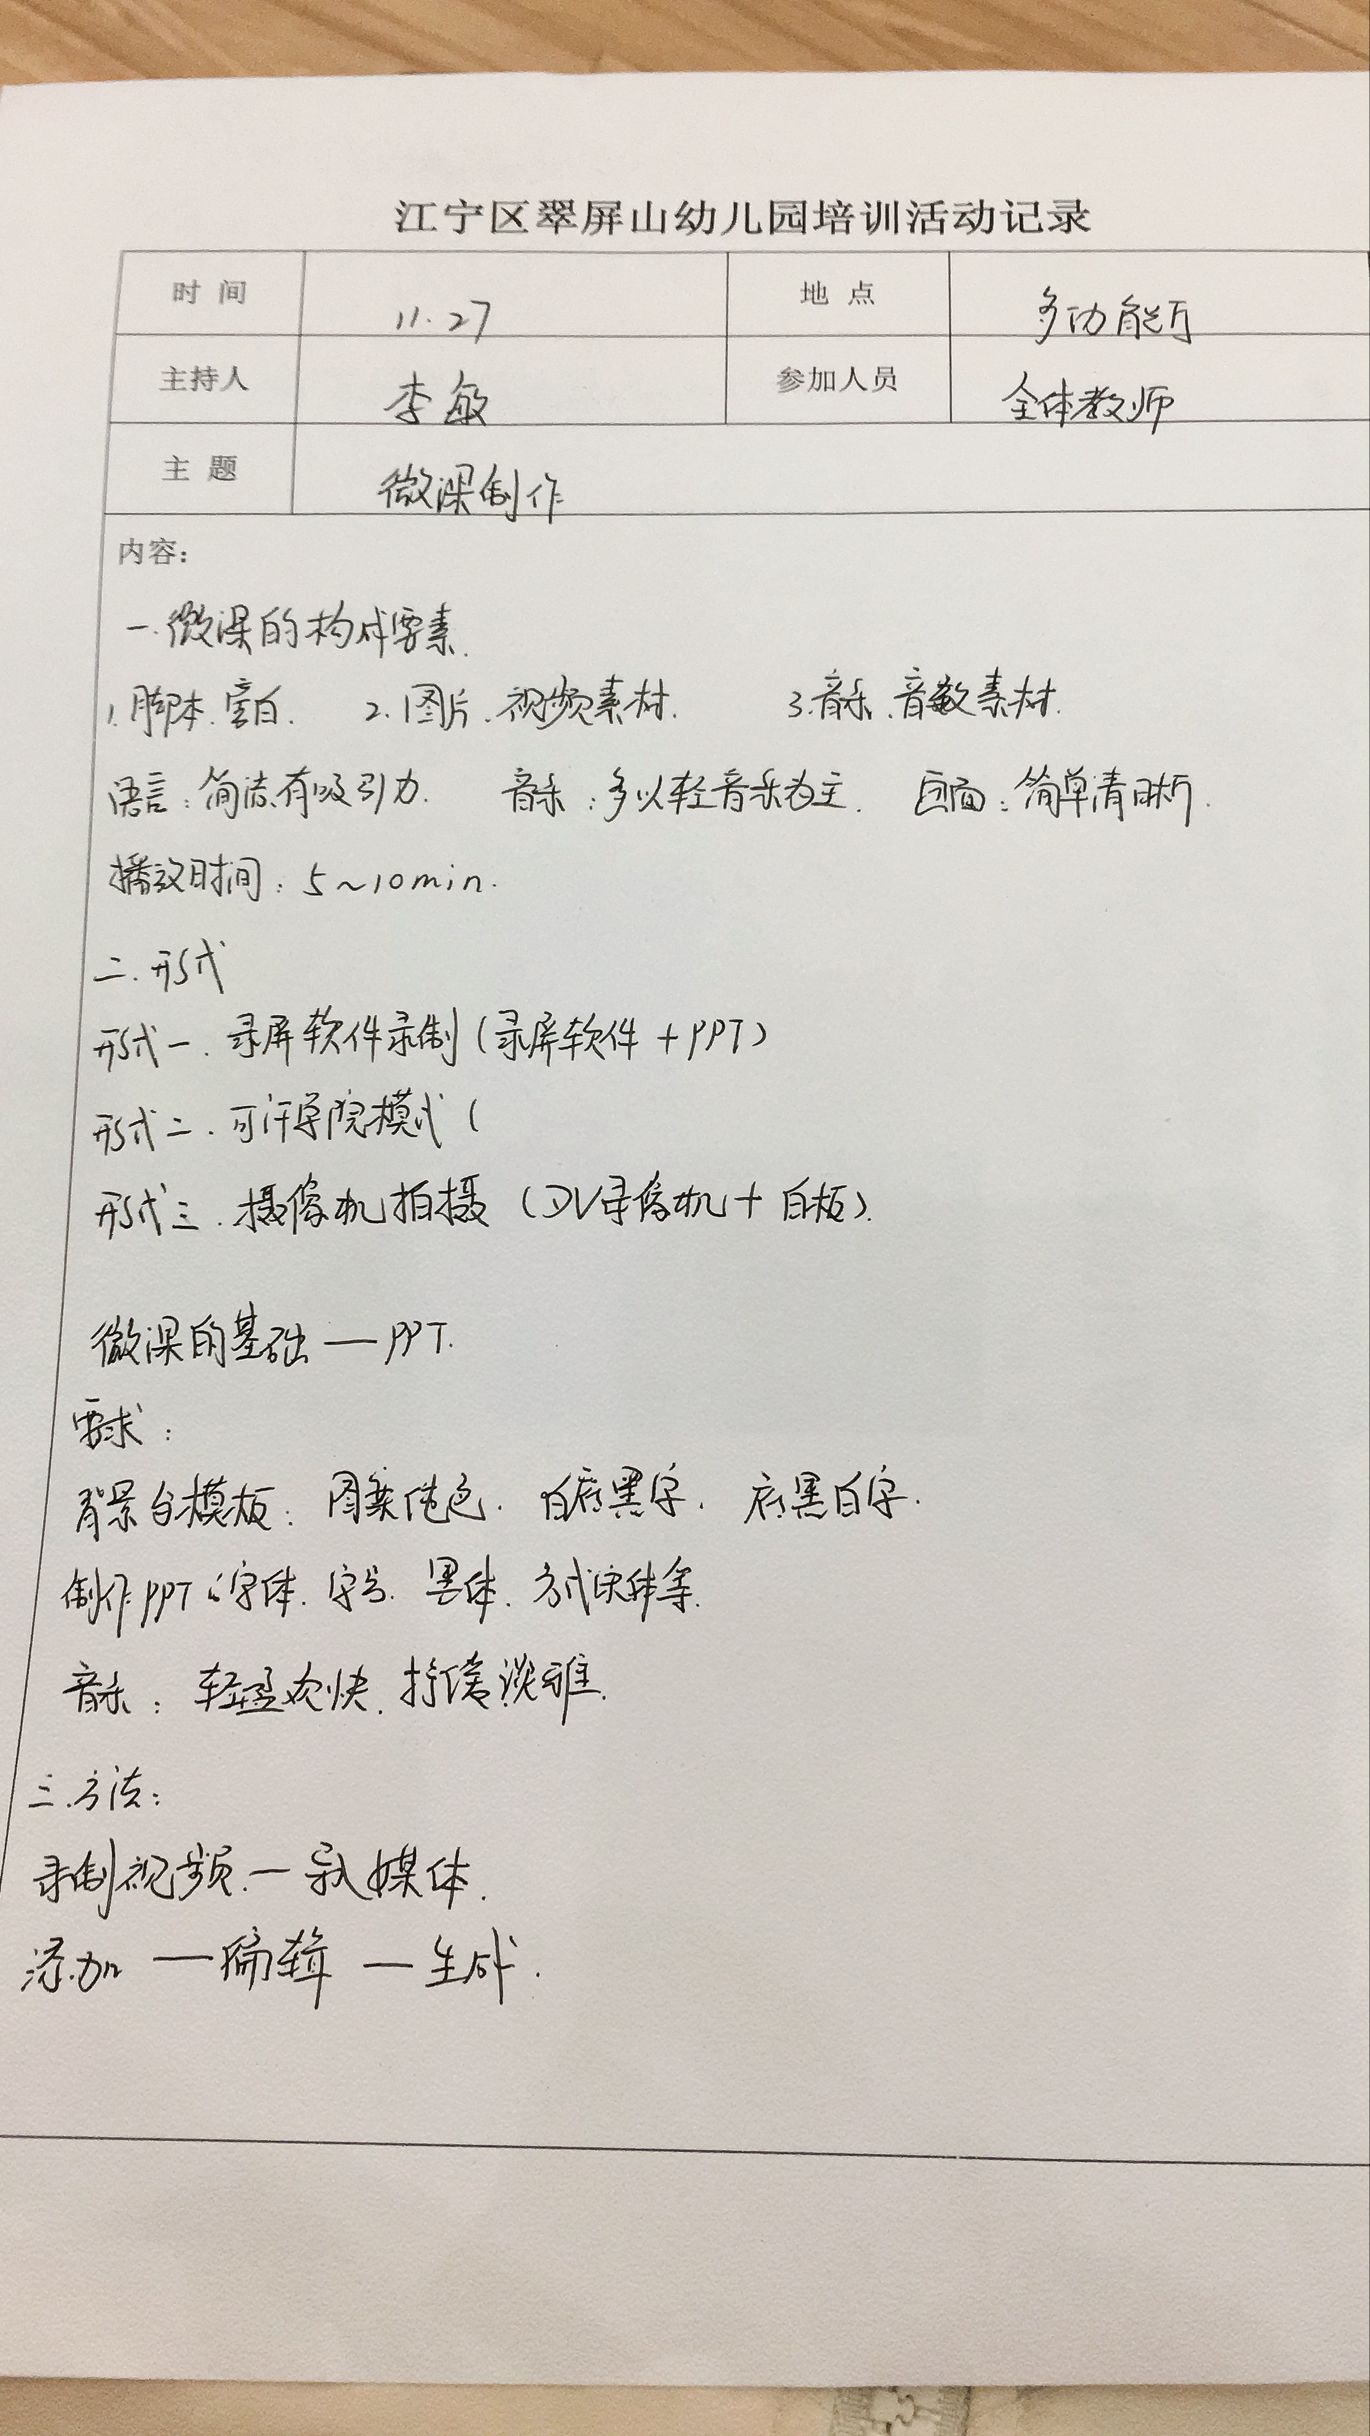 江宁区翠屏山幼儿园培训活动记录
时 间 11.27 地 点 多功能厅
主持人 李敏 参加人员 全体教师
主 题 微课制作
内容：
一.微课的构成要素.
1.脚本.旁白. 2.图片.视频素材. 3.音乐.音效素材.
语言：简洁有吸引力. 音乐：多以轻音乐为主. 画面：简单清晰.
播放时间：5～10min.
二.形式
形式一.录屏软件录制（录屏软件+PPT）
形式二.可汗学院模式（
形式三.摄像机拍摄（DV录像机+白板）.
微课的基础—PPT.
要求：
背景台模板：图案纯色.白底黑字.底黑白字.
制作PPT的字体.字号.黑体.方式宋体等.
音乐：轻盈欢快.抒情淡雅.
三.方法：
录制视频.—导入媒体.
添加—编辑—生成.